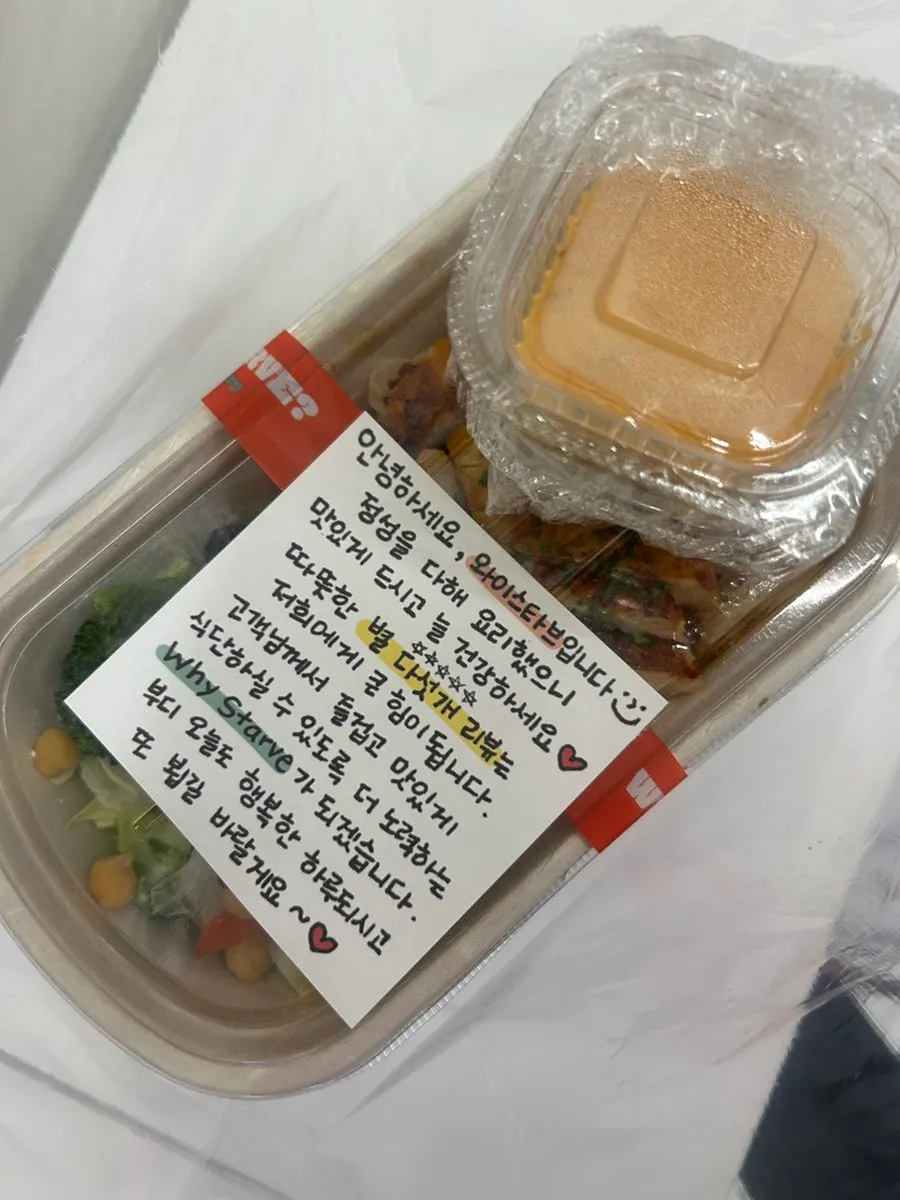 RVE?
안녕하세요, 와이스타브입니다
정성을 다해 요리했으니
맛있게 드시고 늘 건강하세요
따뜻한 별 다섯개 리뷰는
저희에게 큰 힘이 됩니다.
고객님께서 즐겁고 맛있게
식단하실 수 있도록 더 노력하는
Why Starve가 되겠습니다.
부디 오늘도 행복한 하루되시고
또 뵙길 바랄게요~
W